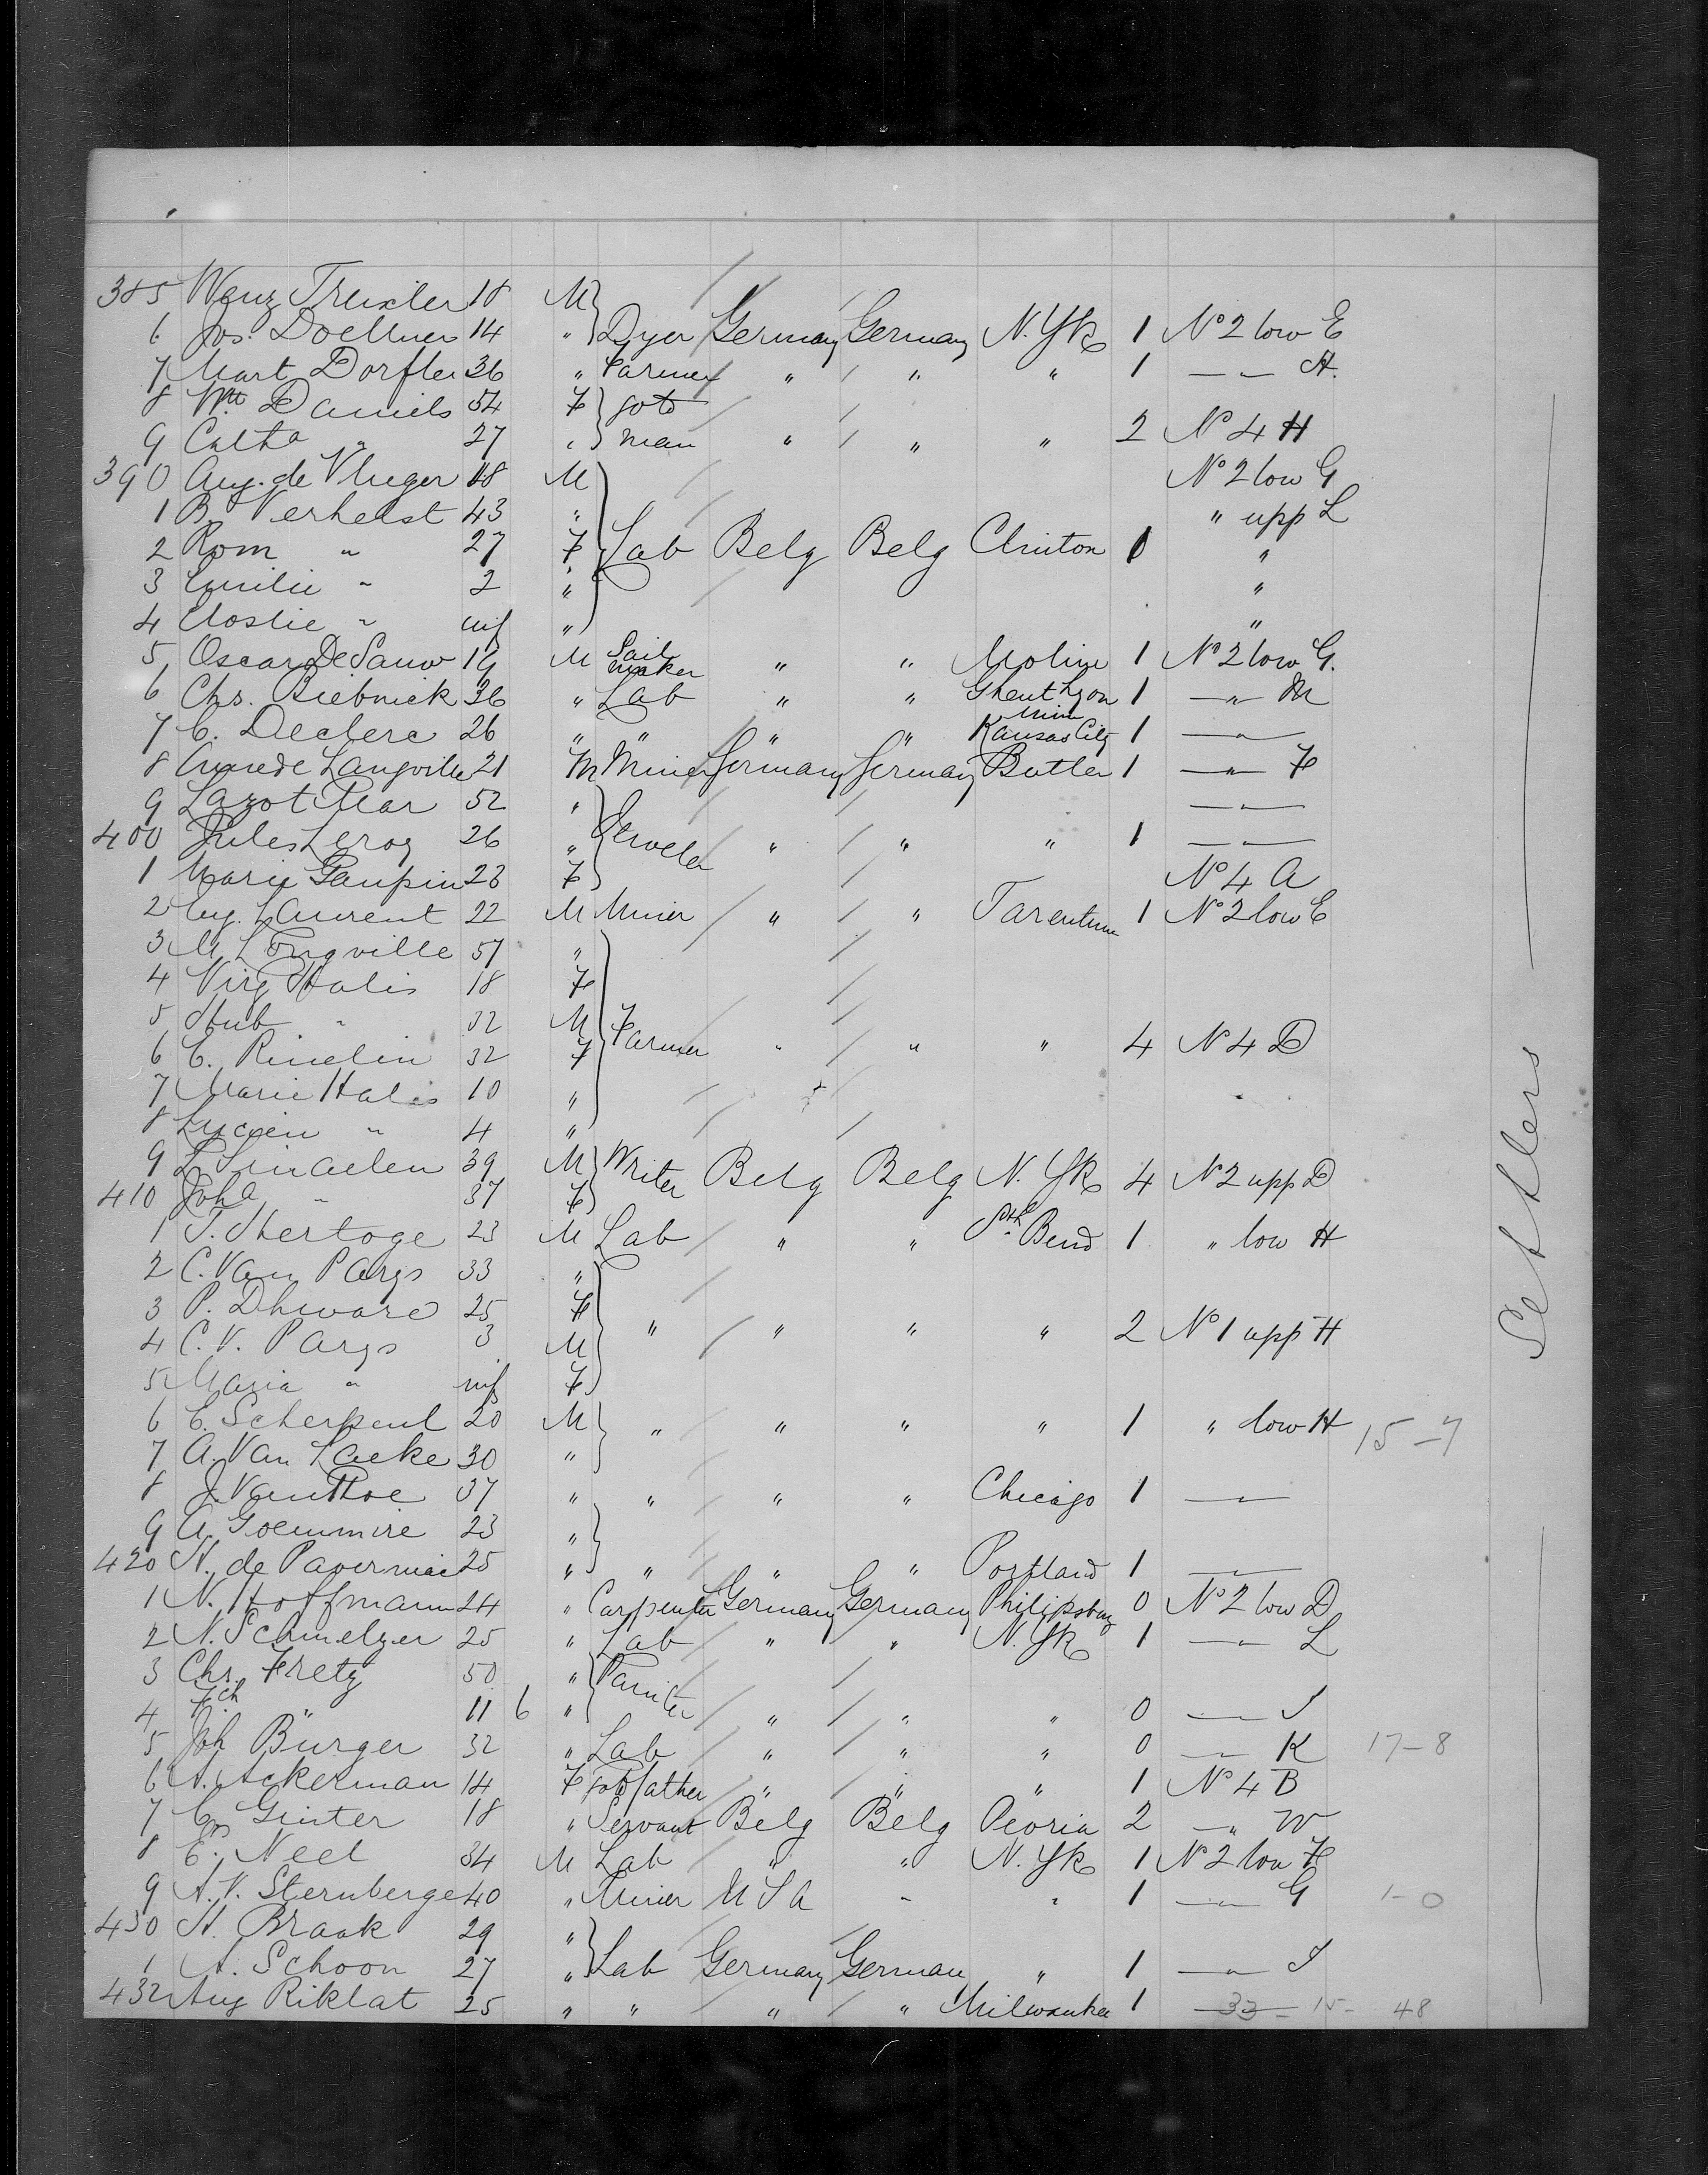 385 Wenz Trexler 18 M
6 Jos. Doellner 14 " Dyer Germany Germany N. Yk 1 No 2 low E
7 Mart Dorfler 36 " Farmer " " " 1 — " — H.
8 Mtt Daniels 54 F go to
9 Catha " 27 " man " " " 2 No 4 H
390 Aug. de Vlieger 18 M No 2 low G
1 B. Verhelst 43 " " upp L
2 Rom " 27 F Lab Belg Belg Clinton 0 "
3 Emilie " 2 " "
4 " inf " "
5 Oscar De Sauw 19 M Sail maker " " Moline 1 No 2 low G.
6 Chs. Biebuick 36 " Lab " " Ghent Lyon Minn 1 — " — M
7 C. Declerc 26 " " " " Kansas City 1 — " —
8 Langville 21 M Miner Germany Germany Butler 1 — " — F
9 Lazot 52 " — " —
400 Jules Leroy 26 " Jeweler " " " 1 — " —
1 Marie Gaupin 23 F No 4 A
2 Laurent 22 M Miner " " Tarentum 1 No 2 low E
3 M. Longville 57 "
4 Virg Halis 18 F
5 Hub " 32 M Farmer
6 C. Rinelin 32 F " " " 4 No 4 D
7 Marie Halis 10 "
8 Lucien " 4 "
9 L. Sinaelen 39 M Writer Belg Belg N. Yk 4 No 2 upp D
410 Joha " 37 F
1 T. Hertoge 23 M Lab " " Sth Bend 1 " low H
2 C. Van Parys 33 "
3 P. Dhware 25 F
4 C. V. Parys 3 M " " " " 2 No 1 upp H
5 Maria " inf F
6 E. Scherpeul 20 M " " " " 1 " low H 15-7
7 A. Van Laeke 30 "
8 J. Van Thoe 37 " " " " Chicago 1 — " —
9 A. Goemmire 23 "
420 H. de 25 " " " " Portland 1 — " —
1 N. Hoffmann 24 " Carpenter Germany Germany Philipsburg 0 No 2 low D
2 N. Schmelzer 25 " Lab " " N. Yk 1 — " — L
3 Chr. Fretz 50 " Painter
4 Fch " 11 6 " " " " 0 — " — J
5 Joh Bürger 32 " Lab " " " 0 — " — K 17-8
6 A. Ackerman 14 F go to father " " " 1 No 4 B
7 Ginter 18 " Servant Belg Belg Peoria 2 — " — W
8 E. Neel 34 M Lab " " N. Yk 1 No 2 low F
9 A. V. Sternberge 40 " Miner U S A " " 1 — " — G 1-0
430 H. Braak 29 "
1 A. Schoon 27 " Lab Germany German " 1 — " — J
432 Aug Riklat 25 " " " " Milwaukee 1 — 33 — 15- 48
Settlers